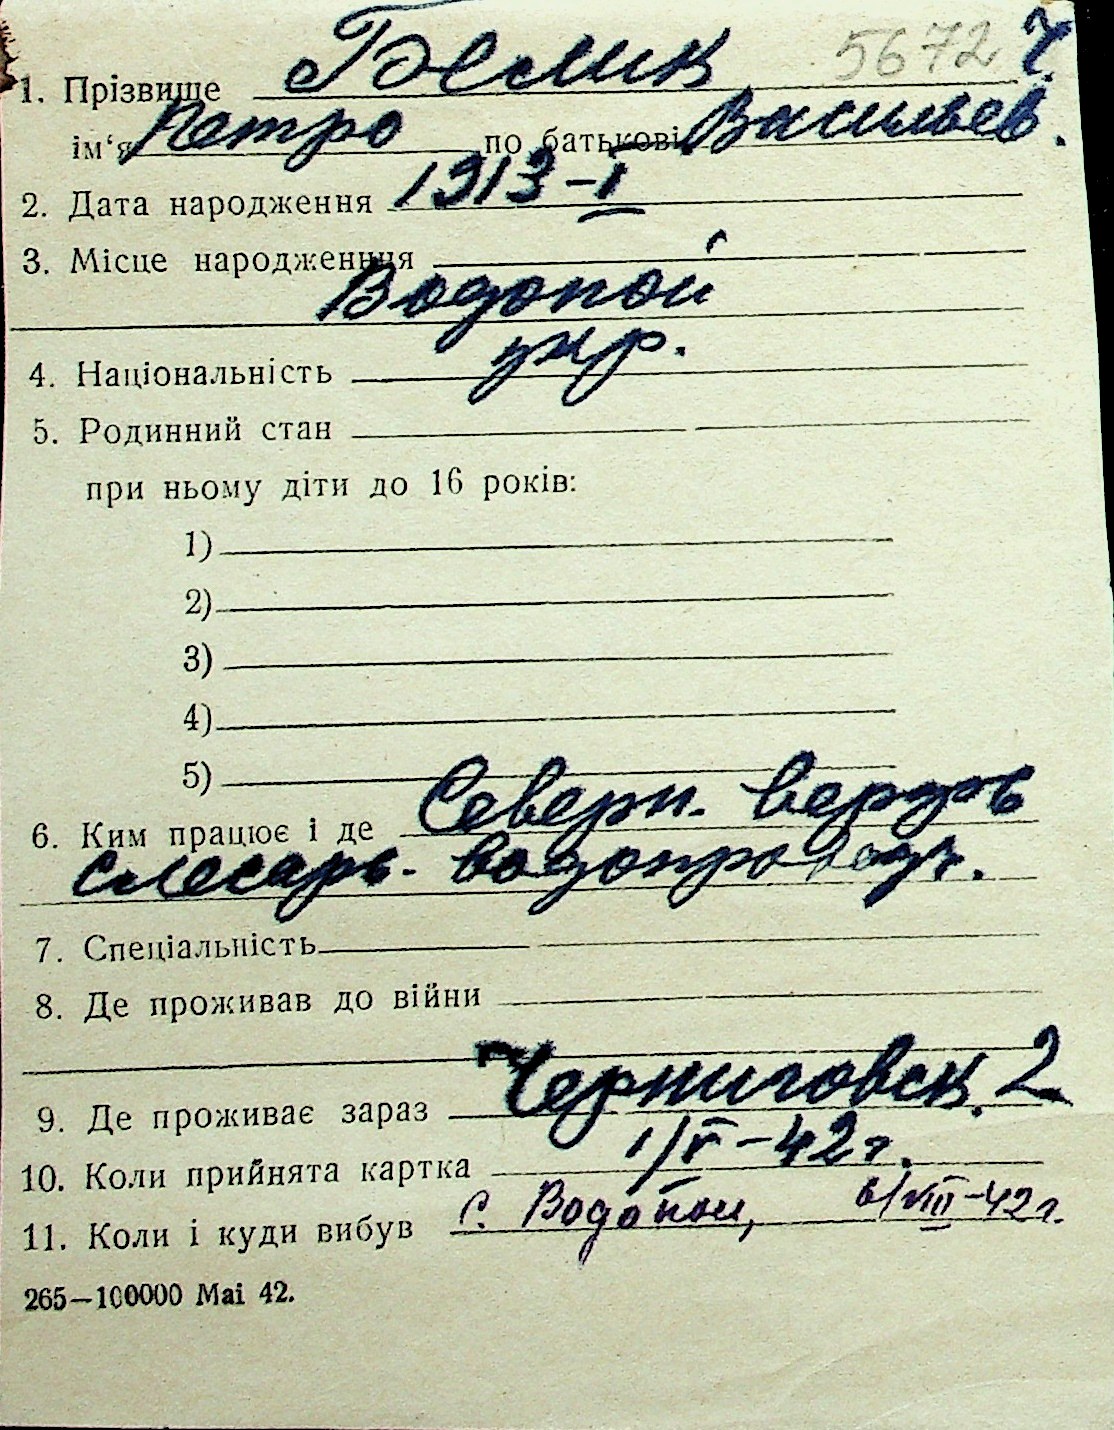 5672 Ч.
1. Прізвище Беlик
ім‘я Петро по батькові Васильев.
2. Дата народження 1913-I
3. Місце народженння
Водопой
4. Національність укр.
5. Родинний стан
при ньому діти до 16 років:
1)
2)
3)
4)
5)
6. Ким працює і де Северн. верфь
слесарь. водопроводч.
7. Спеціальність
8. Де проживав до війни
9. Де проживає зараз Черниговск. 2
10. Коли прийнята картка 1/V-42г.
11. Коли і куди вибув с. Водопой, 6/VIII-42г.
265—100000 Mai 42.